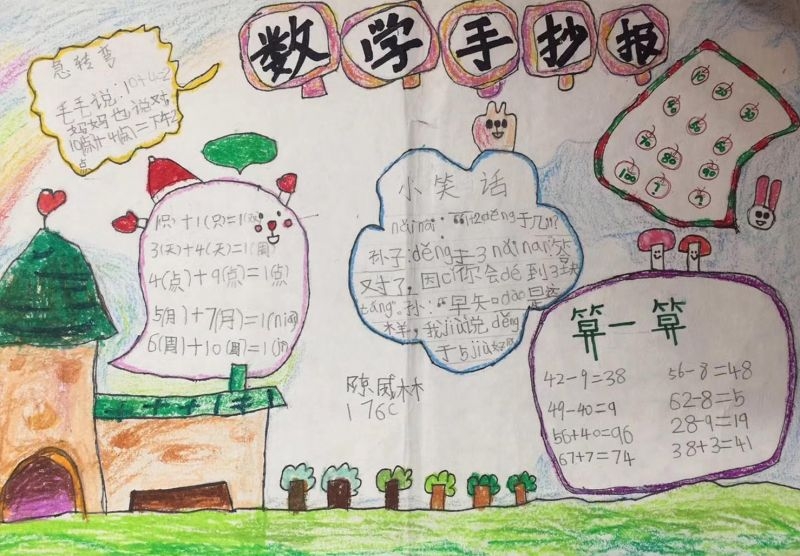 数学手抄报
急转弯
毛毛说:10+4=2
妈妈也说对
10点+4点=下午2
点
1(只)+1(只)=1(双)
3(天)+4(天)=1(周)
4(点)+9(点)=1(点)
5(月)+7(月)=1(nián)
6(周)+10(周)=1(
小笑话
nǎinai:“1+2děng于几?”
孙子:děng于3 nǎinai:答
对了,因cǐ你会dé到3块
táng。孙:“早知dào是这
样,我jiù说děng
于5jiù好
10
20
30
100
算一算
42-9=38 56-8=48
49-40=9 62-8=5
56+40=96 28-9=19
67+7=74 38+3=41
陈威林
176C